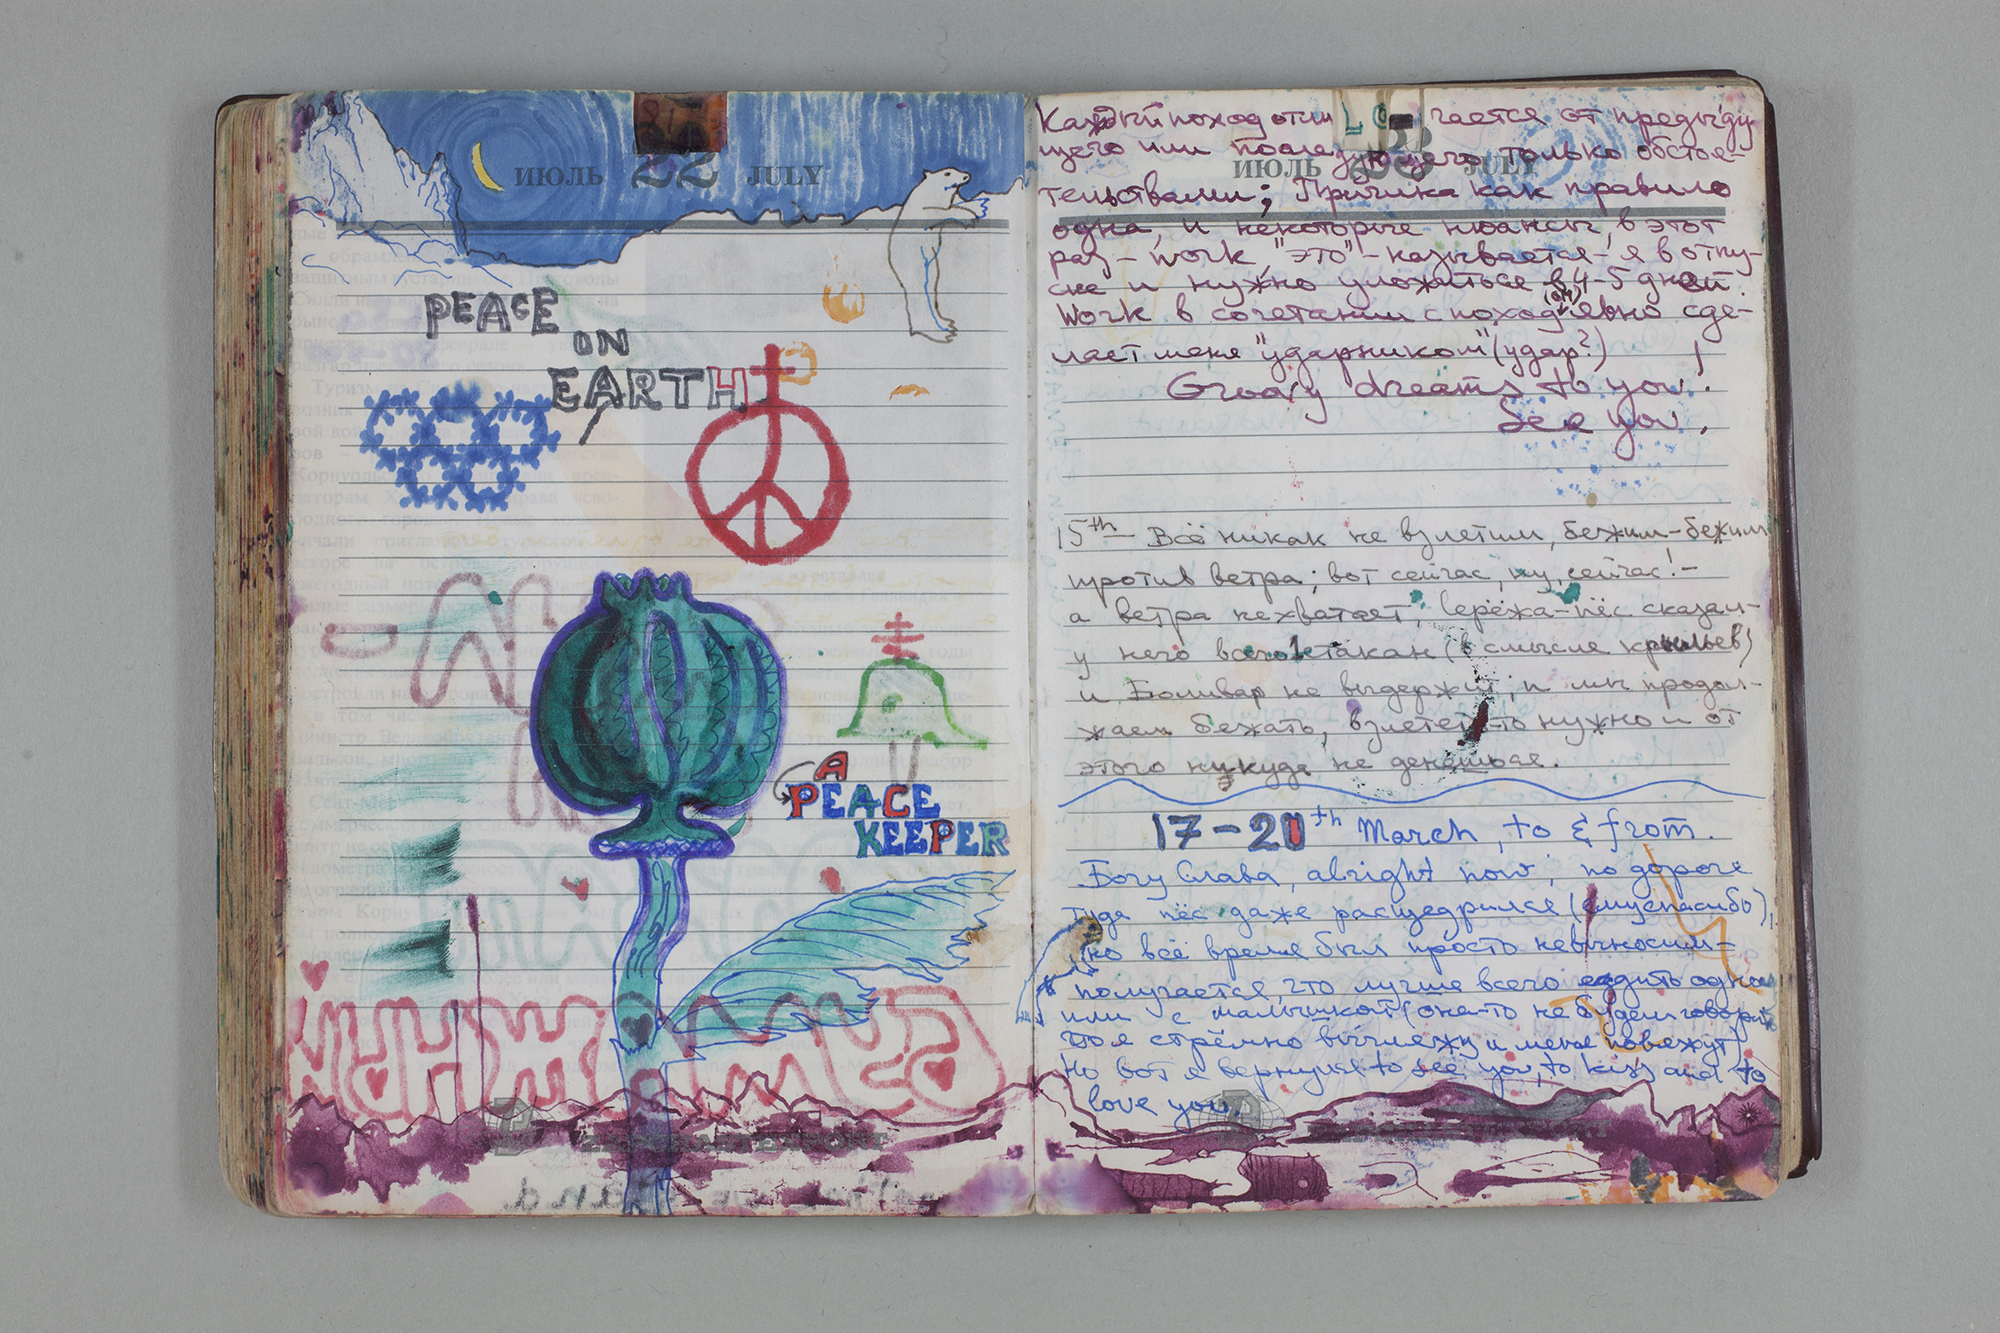 ИЮЛЬ 22 JULY
PEACE
ON
EARTH
A
PEACE
KEEPER
ИЮЛЬ 23 JULY
Каждый поход отли LO чается от предыду-
щего или последующего только обстоя-
тельствами; Причина как правило
одна, и некоторые нюансы, в этот
раз – work, "это" – называется – я в отпу-
ске и нужно уложиться в 4-5 дней.
Work в сочетании с походневно сде-
лает меня "ударником" (удар?)
Groovy dreams to you!
See you.
15th Всё никак не взлетим, бежим-бежим
против ветра; вот сейчас, ну, сейчас! –
а ветра не хватает, Серёжа-пёс сказал-
у него всего 1 стакан (в смысле крыльев)
и Боливар не выдержит, и мы продол-
жаем бежать, взлететь-то нужно и от
этого никуда не денешься.
17-20th March, to & from.
Богу Слава, alright now; по дороге
туда пёс даже расщедрился (ему спасибо),
но всё время был просто невыносим-
получается, что лучше всего ездить одному
или с малышкой (она-то не будет говорить
что я стрёмно выгляжу и меня повяжут)
Но вот я вернулся to see you, to kiss and to
love you.